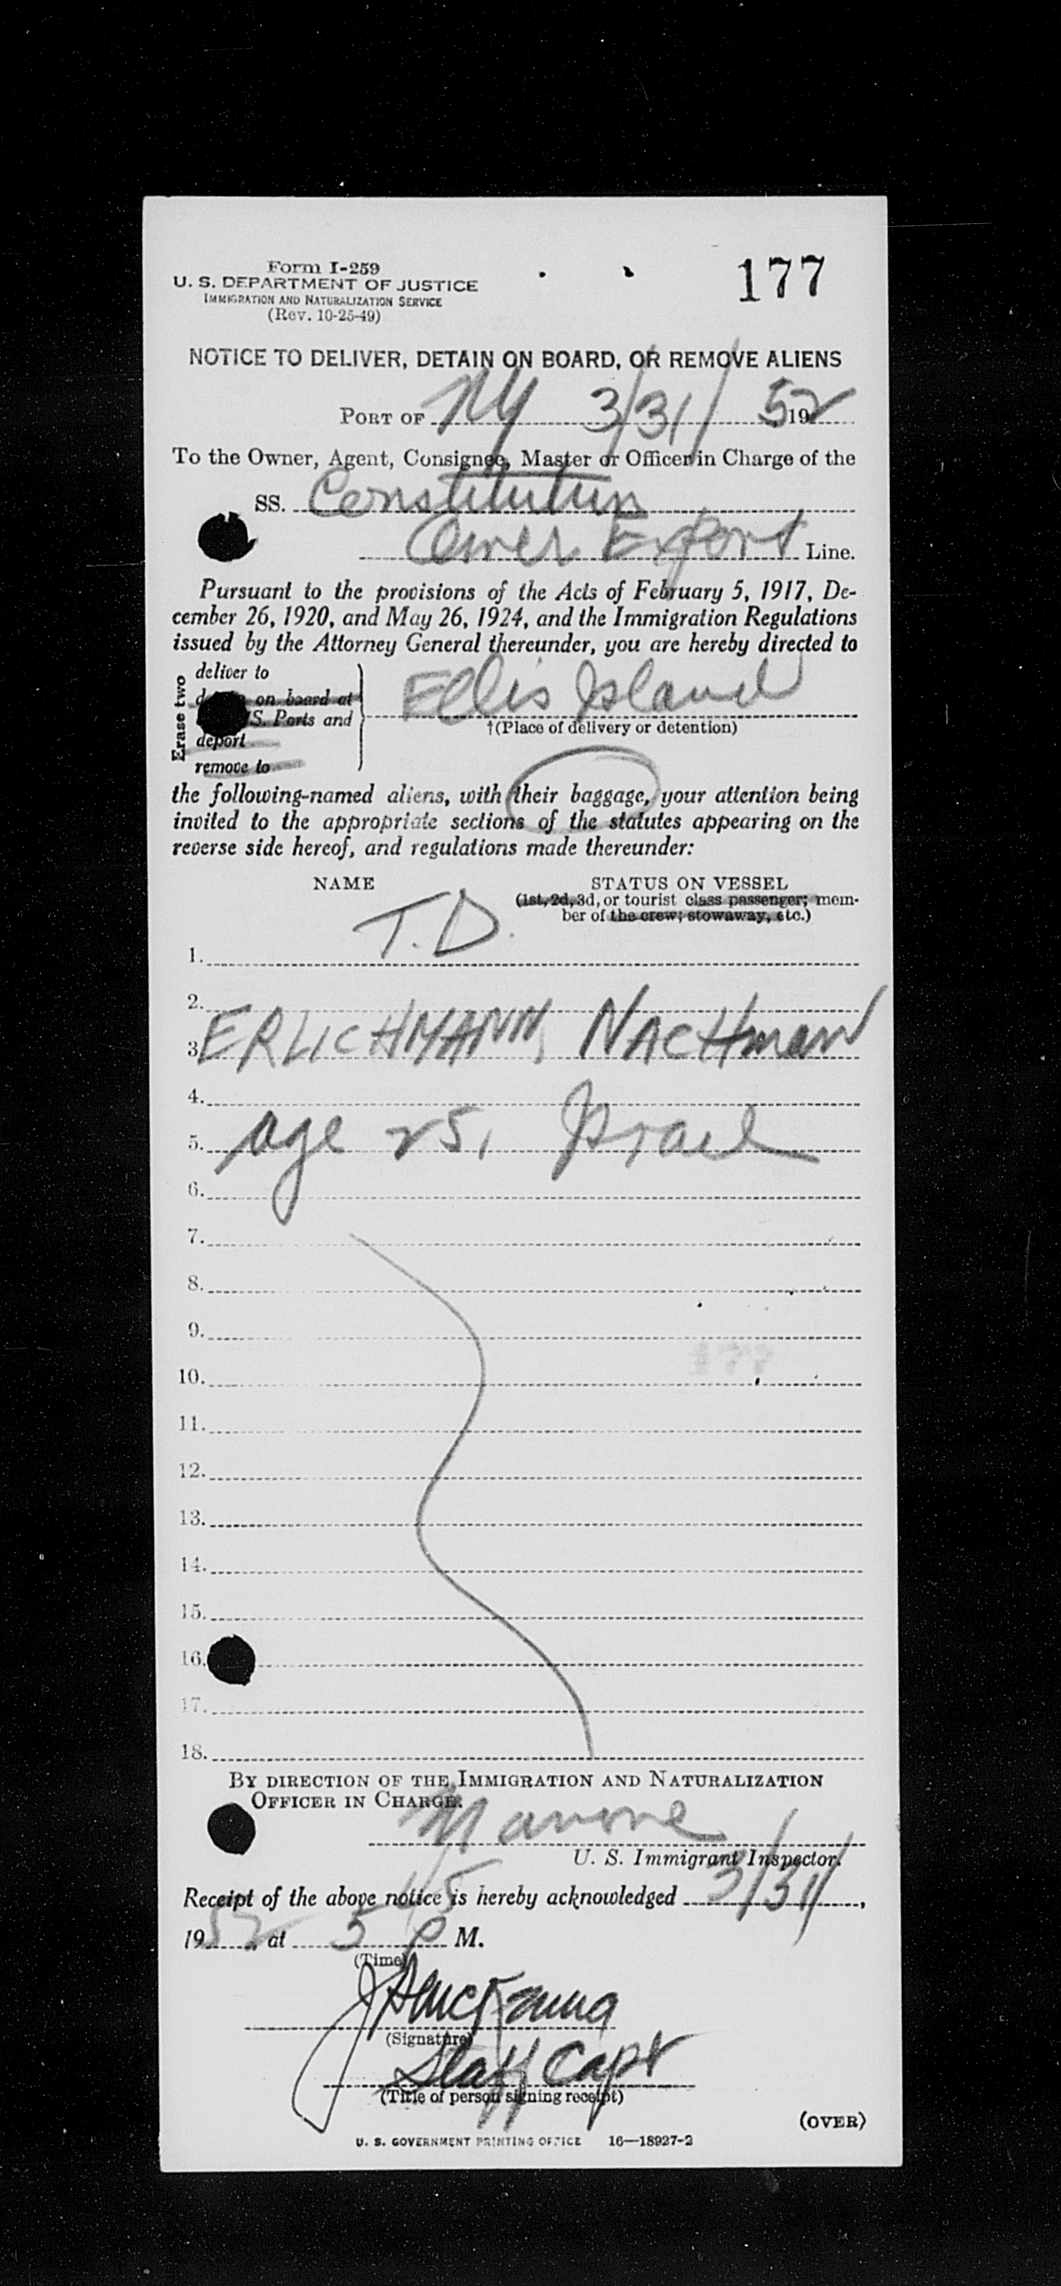 Form I-259
U. S. DEPARTMENT OF JUSTICE
IMMIGRATION AND NATURALIZATION SERVICE
(Rev. 10-25-49)
177
NOTICE TO DELIVER, DETAIN ON BOARD, OR REMOVE ALIENS
PORT OF NY 3/31/ 52 19
To the Owner, Agent, Consignee, Master or Officer in Charge of the
SS. Constitution
Amer Export Line.
Pursuant to the provisions of the Acts of February 5, 1917, De-
cember 26, 1920, and May 26, 1924, and the Immigration Regulations
issued by the Attorney General thereunder, you are hereby directed to
Erase two
deliver to
on board at
S. Ports and
deport
remove to
Ellis Island
†(Place of delivery or detention)
the following-named aliens, with their baggage, your attention being
invited to the appropriate sections of the statutes appearing on the
reverse side hereof, and regulations made thereunder:
NAME STATUS ON VESSEL
(1st, 2d, 3d, or tourist class passenger; mem-
ber of the crew; stowaway, etc.)
T.D.
1.
2.
3. ERLICHMANN, NACHman
4.
5. age 25, Israel
6.
7.
8.
9.
10.
11.
12.
13.
14.
15.
16.
17.
18.
BY DIRECTION OF THE IMMIGRATION AND NATURALIZATION
OFFICER IN CHARGE.
U. S. Immigrant Inspector.
Receipt of the above notice is hereby acknowledged 3/31/,
1952, at 5 45 P M.
(Time)
(Signature)
Staff Capt
(Title of person signing receipt)
(OVER)
U. S. GOVERNMENT PRINTING OFFICE 16—18927-2